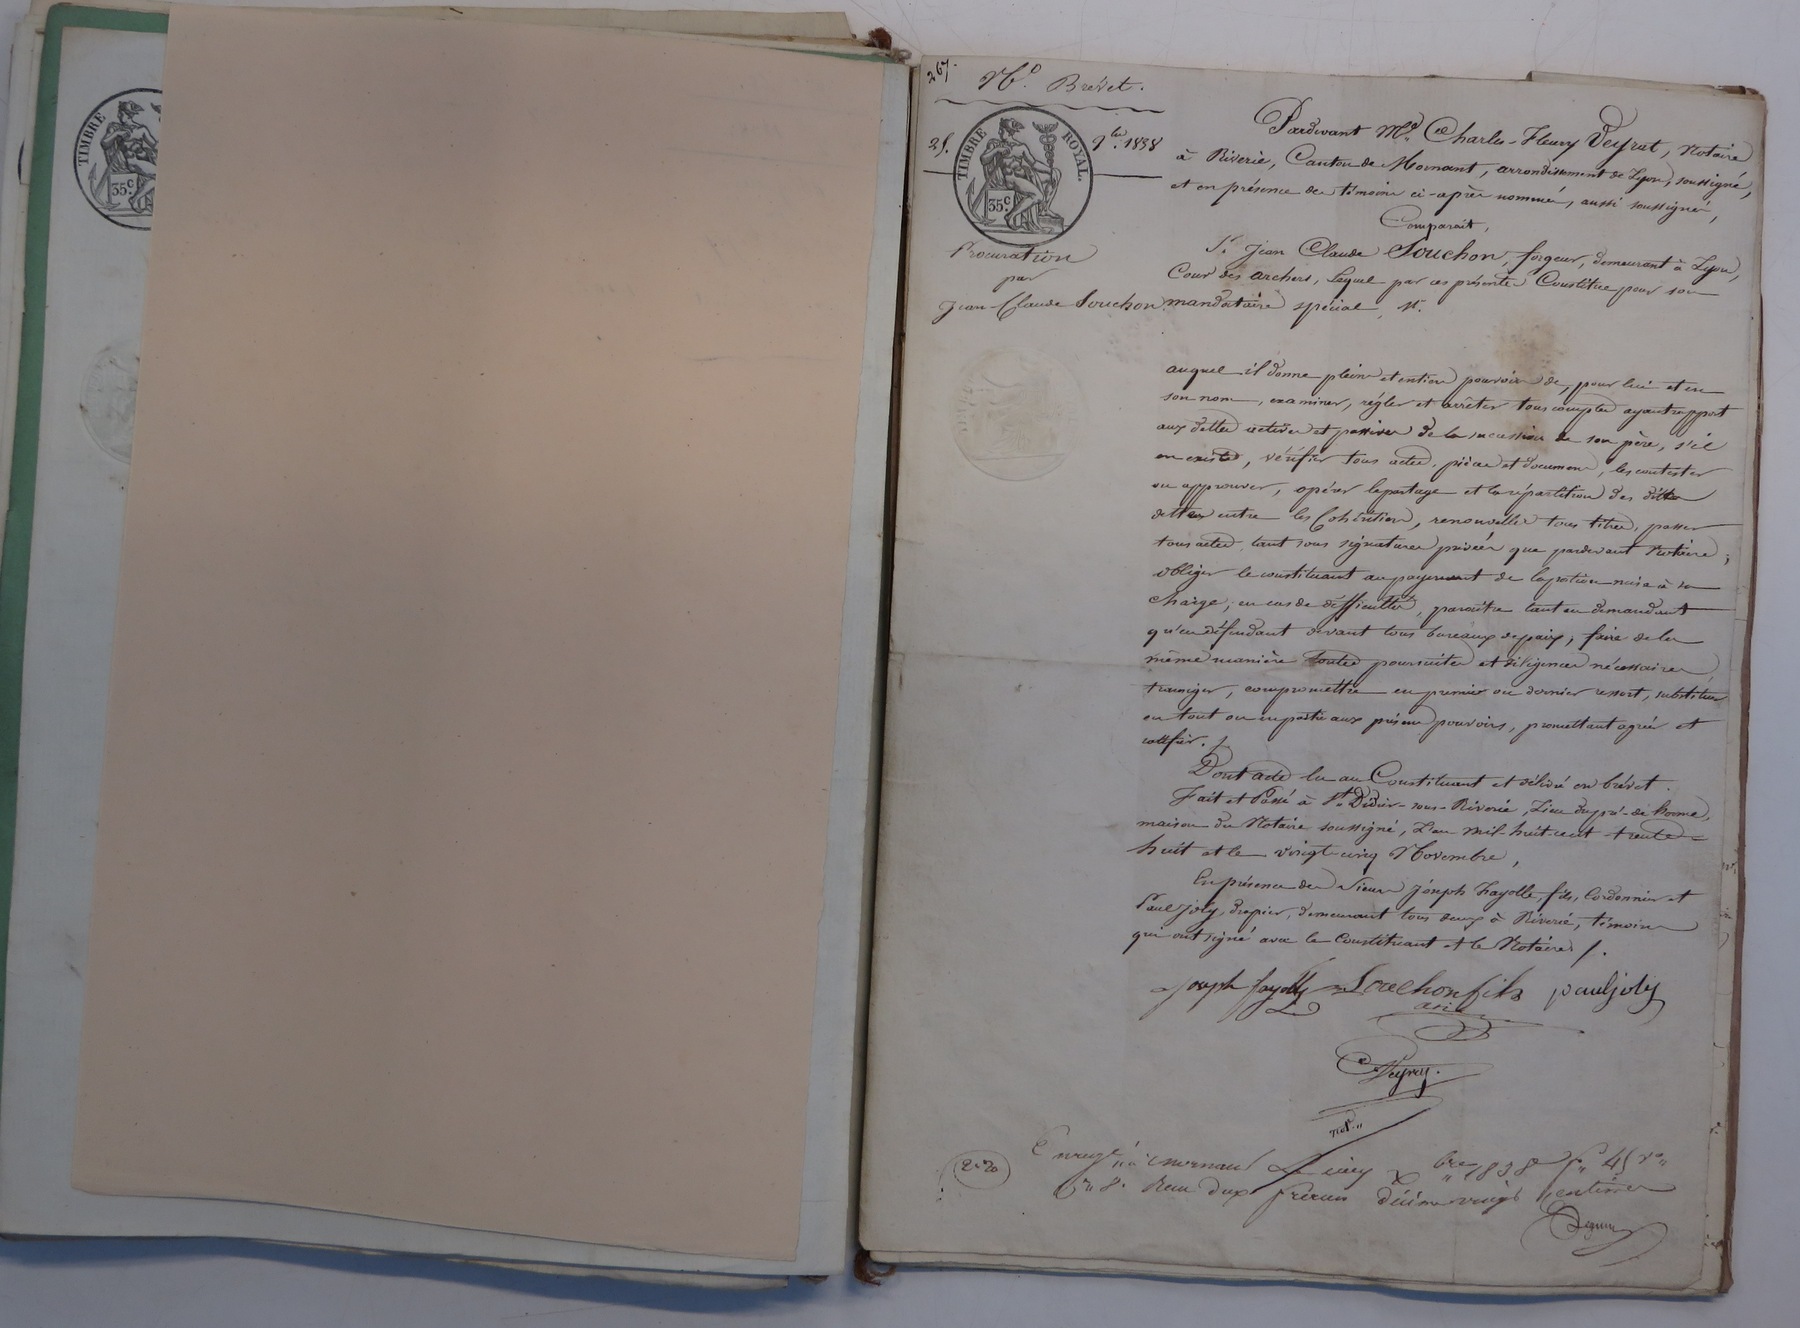 TIMBRE
35c.
267.
No. Brevet.
25. 9bre. 1838
TIMBRE ROYAL.
35c.
Procuration
par
Jean-Claude Souchon.
Pardevant Me. Charles-Fleury Veyrat, Notaire
à Riverie, Canton de Mornant, arrondissement de Lyon, soussigné,
et en présence des témoins ci-après nommés, aussi soussignés,
Comparait,
Sr. Jean Claude Souchon, forgeur, demeurant à Lyon,
Cour des archers, Lequel par ces présentes Constitue pour son
mandataire spécial, M.
auquel il donne plein et entier pouvoir de, pour lui et en
son nom, examiner, régler et arrêter tous comptes ayant rapport
aux dettes actives et passives de la succession de son père, s'il
en existe, vérifier tous actes, pièces et documens, les contester
ou approuver, opérer le partage et la répartition des dites
dettes entre les Cohéritiers, renouveller tous titres, passer
tous actes, tant sous signatures privées que pardevant Notaire;
obliger le constituant au payement de la portion mise à sa
charge; en cas de difficultés, paroître tant en demandant
qu'en défendant devant tous bureaux de paix, faire de la
même manière toutes poursuites et diligences nécessaires,
transiger, compromettre en premier ou dernier ressort, substituer
en tout ou en partie aux présens pouvoirs, promettant agréer et
ratifier.
Dont acte lu au Constituant et délivré en brévet.
Fait et Passé à St. Didier-sous-Riverie, Lieu du pré-de
maison du Notaire soussigné, L'an mil-huit-cent trente-
huit et le vingt-cinq Novembre,
En présence des Sieurs Joseph Fayolle fils, Cordonnier et
Paul Joly, drapier, demeurant tous deux à Riverie, témoins
qui ont signé avec le Constituant et le Notaire /.
joseph fayolle Souchon fils paul joly
Veyrat.
not.
2.20
Enregé. à mornant Le cinq Xbre 1838 fo. 45 vo.
Co. 8. Reçu deux francs décime vingt centimes